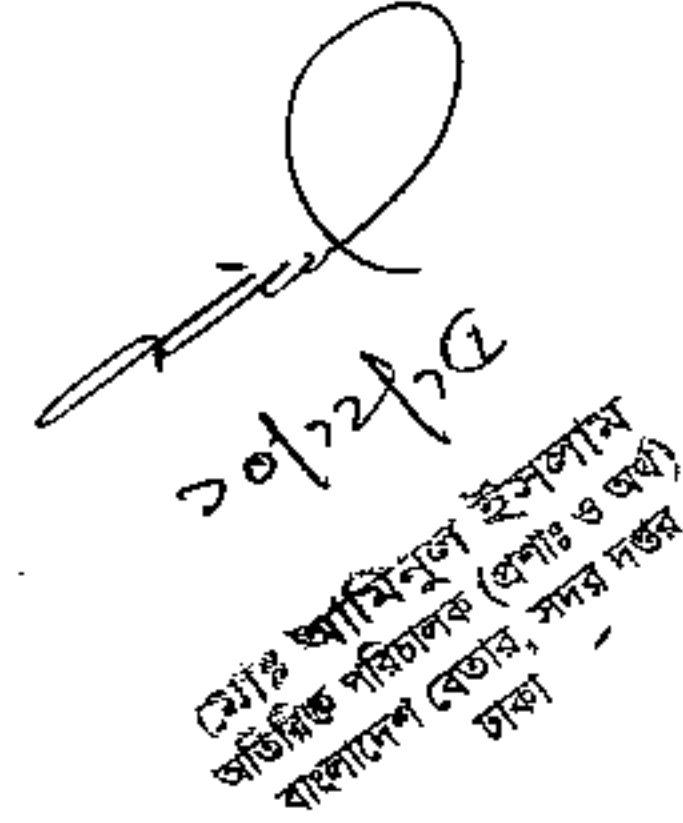 ১০/১২/১৫
মোঃ আমিনুল ইসলাম
অতিরিক্ত পরিচালক (প্রশাঃ ও অর্থ)
বাংলাদেশ বেতার, সদর দপ্তর
ঢাকা